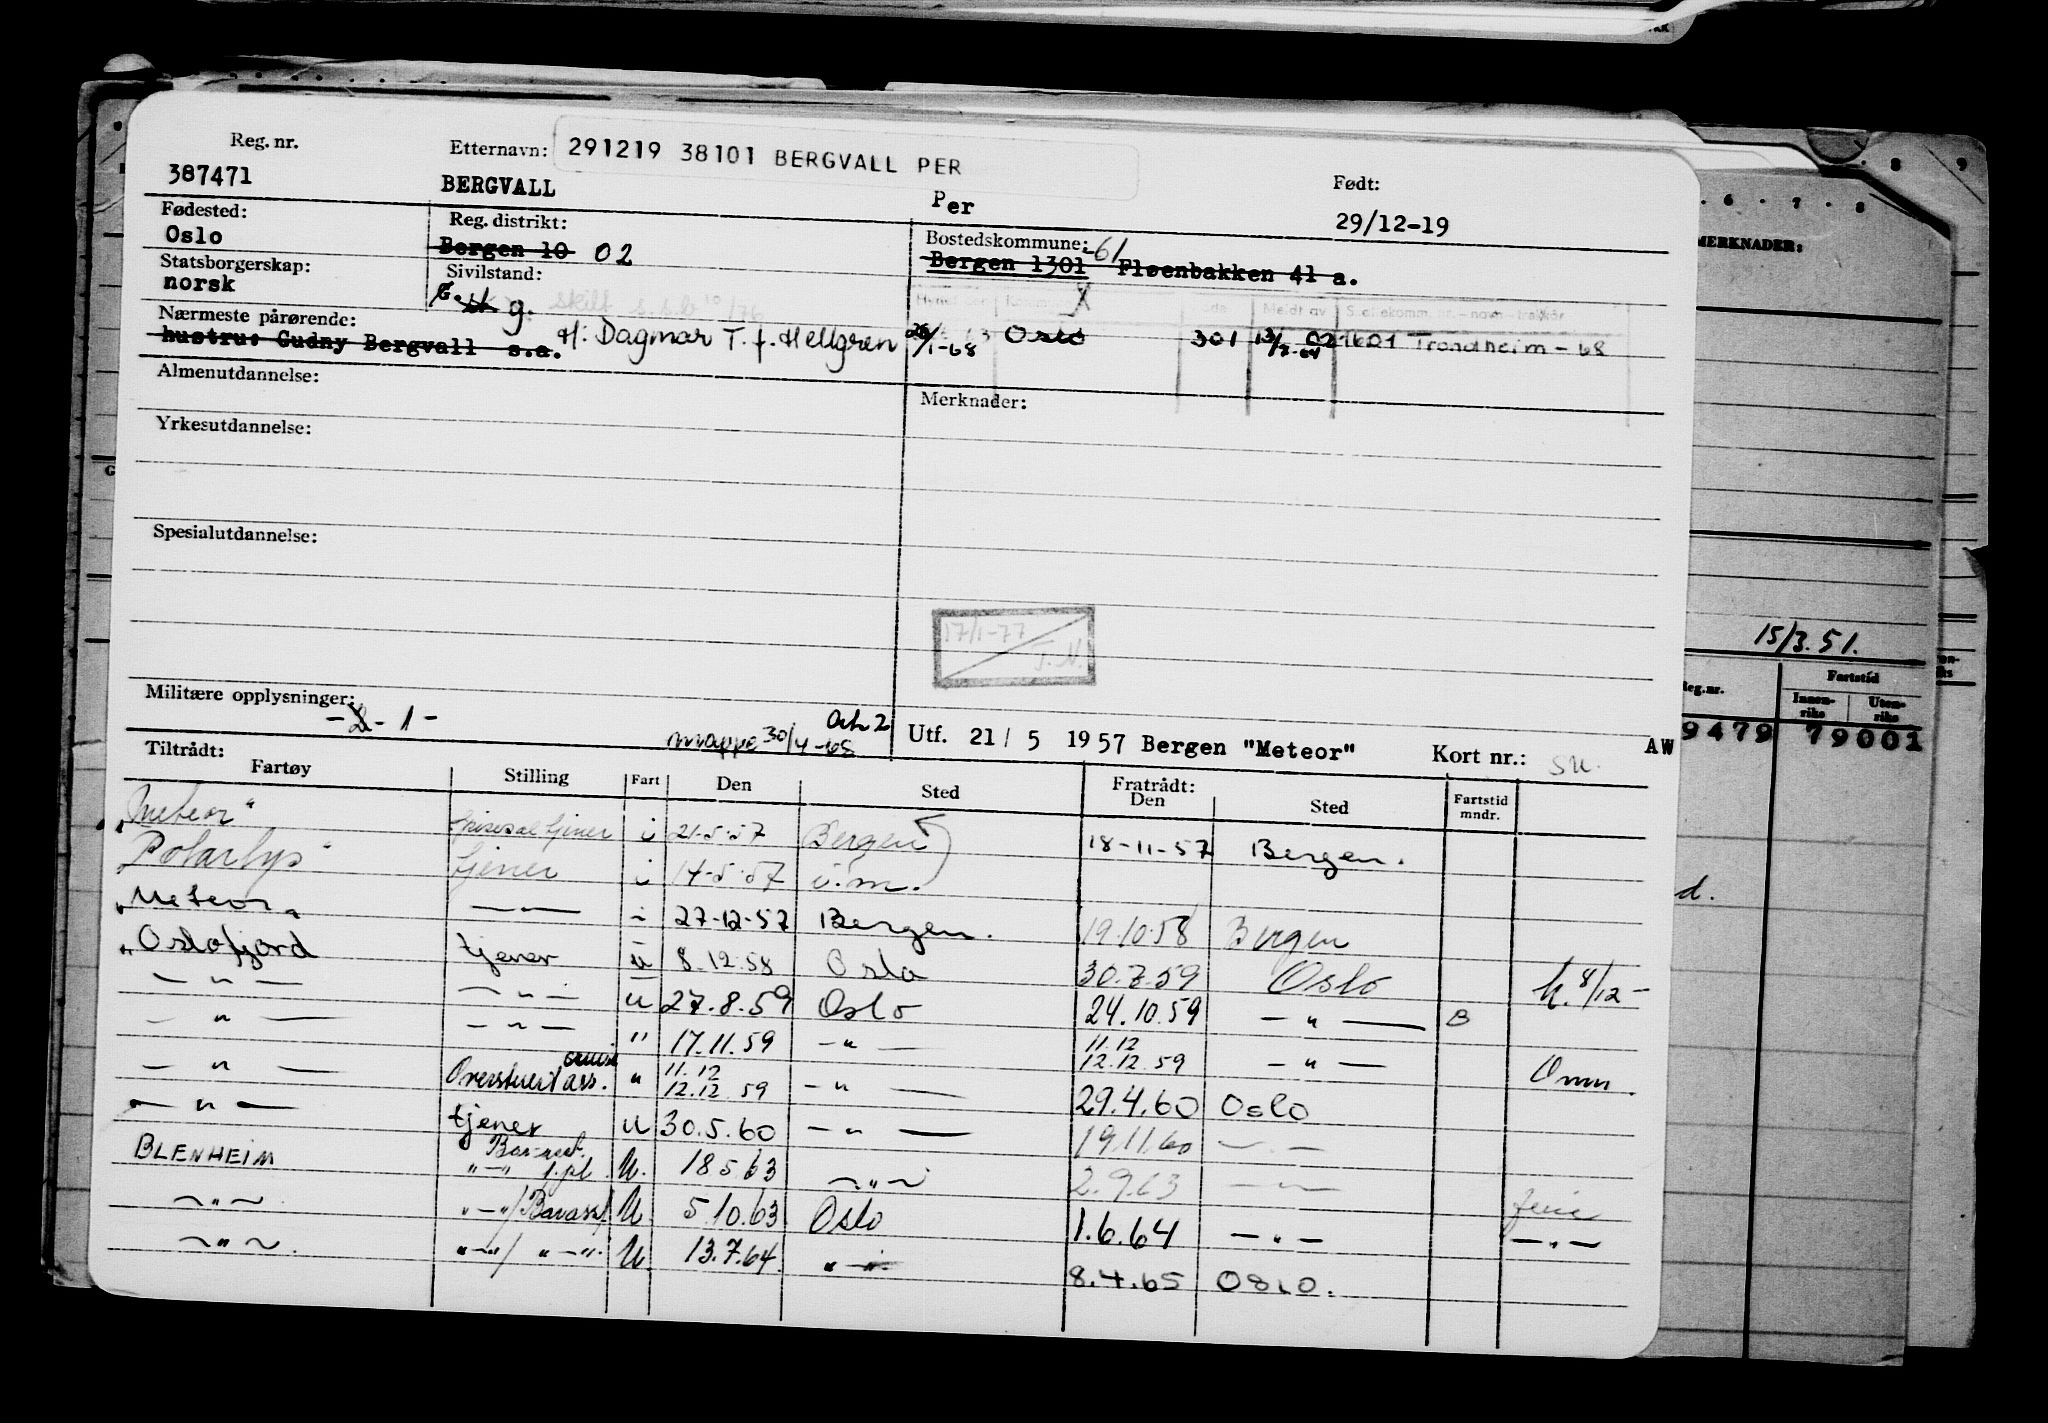 Reg. nr. Etternavn: 291219 38101 BERGVALL PER Født:
387471 BERGVALL Per 29/12-19
Fødested: Reg. distrikt: Bostedskommune: 61
Oslo Bergen 10 02 Bergen 1301 Fløenbakken 41 a.
Statsborgerskap: Sivilstand:
norsk g.
Nærmeste pårørende:
hustru: Gudny Bergvall s.a. H: Dagmar T. f. Hellgren 26/1-68 Oslo 301 13/7-64 02 1601 Trondheim - 68
Almenutdannelse: Merknader:
Yrkesutdannelse:
Spesialutdannelse:
17/1-77
T.N.
15/3.51.
MERKNADER:
Militære opplysninger: -2- 1-
mappe 30/4-68 Utf. 21/5 1957 Bergen "Meteor" Kort nr.: AW
Tiltrådt: Fratrådt:
Fartøy Stilling Fart Den Sted Den Sted Fartstid mndr.
"Meteor" i 21.5.57 Bergen 18-11-57 Bergen.
"Polarlys" tjener i 14-5-57 i.m.
"Meteor" — " — i 27-12-57 Bergen. 19.10.58 Bergen
"Oslofjord tjener u 8.12.58 Oslo 30.7.59 Oslo 8/12 -
— " — — " — u 27.8.59 Oslo 24.10.59 — " — B
— " — — " — " 17.11.59 — " — 11.12 12.12.59 — " — Omm.
— " — ass. " 11.12 12.12.59 — " — 29.4.60 Oslo
— " — tjener u 30.5.60 — " — 19.11.60 — " —
BLENHEIM " — " U. 18 5 63 — " — 2.9.63 — " —
— " — " — "/Barass/ U. 5.10.63 Oslo 1.6.64 — " — — " —
— " — . " — "/ " — " U. 13.7.64. " — " 8.4.65 OSLO.
Reg.nr. Fartstid
Innenriks Utenriks
9479 79001
d.